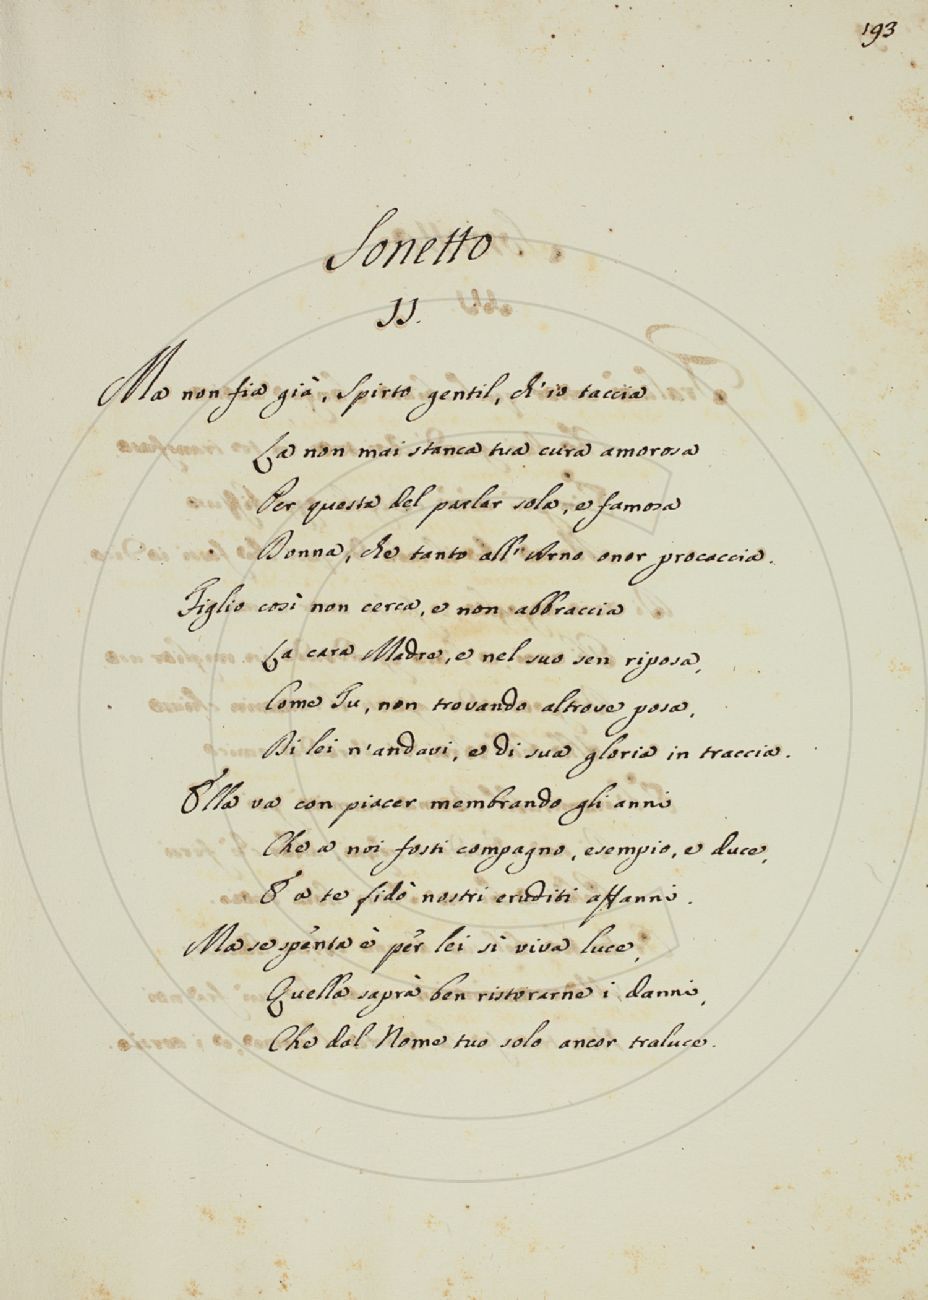 193
Sonetto
II.
Ma non fia già, Spirto gentil, ch'io taccia
La non mai stanca tua cura amorosa
Per questa del parlar sola, e famosa
Donna, che tanto all'Arno onor procaccia.
Figlio così non cerca, e non abbraccia
La cara Madre, e nel suo sen riposa,
Come Tu, non trovando altrove posa,
Di lei n'andavi, e di sua gloria in traccia.
Ella va con piacer membrando gli anni
Che a noi fosti compagno, esempio, e duce,
E a te fidò nostri eruditi affanni.
Ma se spenta è per lei sì viva luce,
Quella saprà ben ristorarne i danni,
Che dal Nome tuo solo ancor traluce.